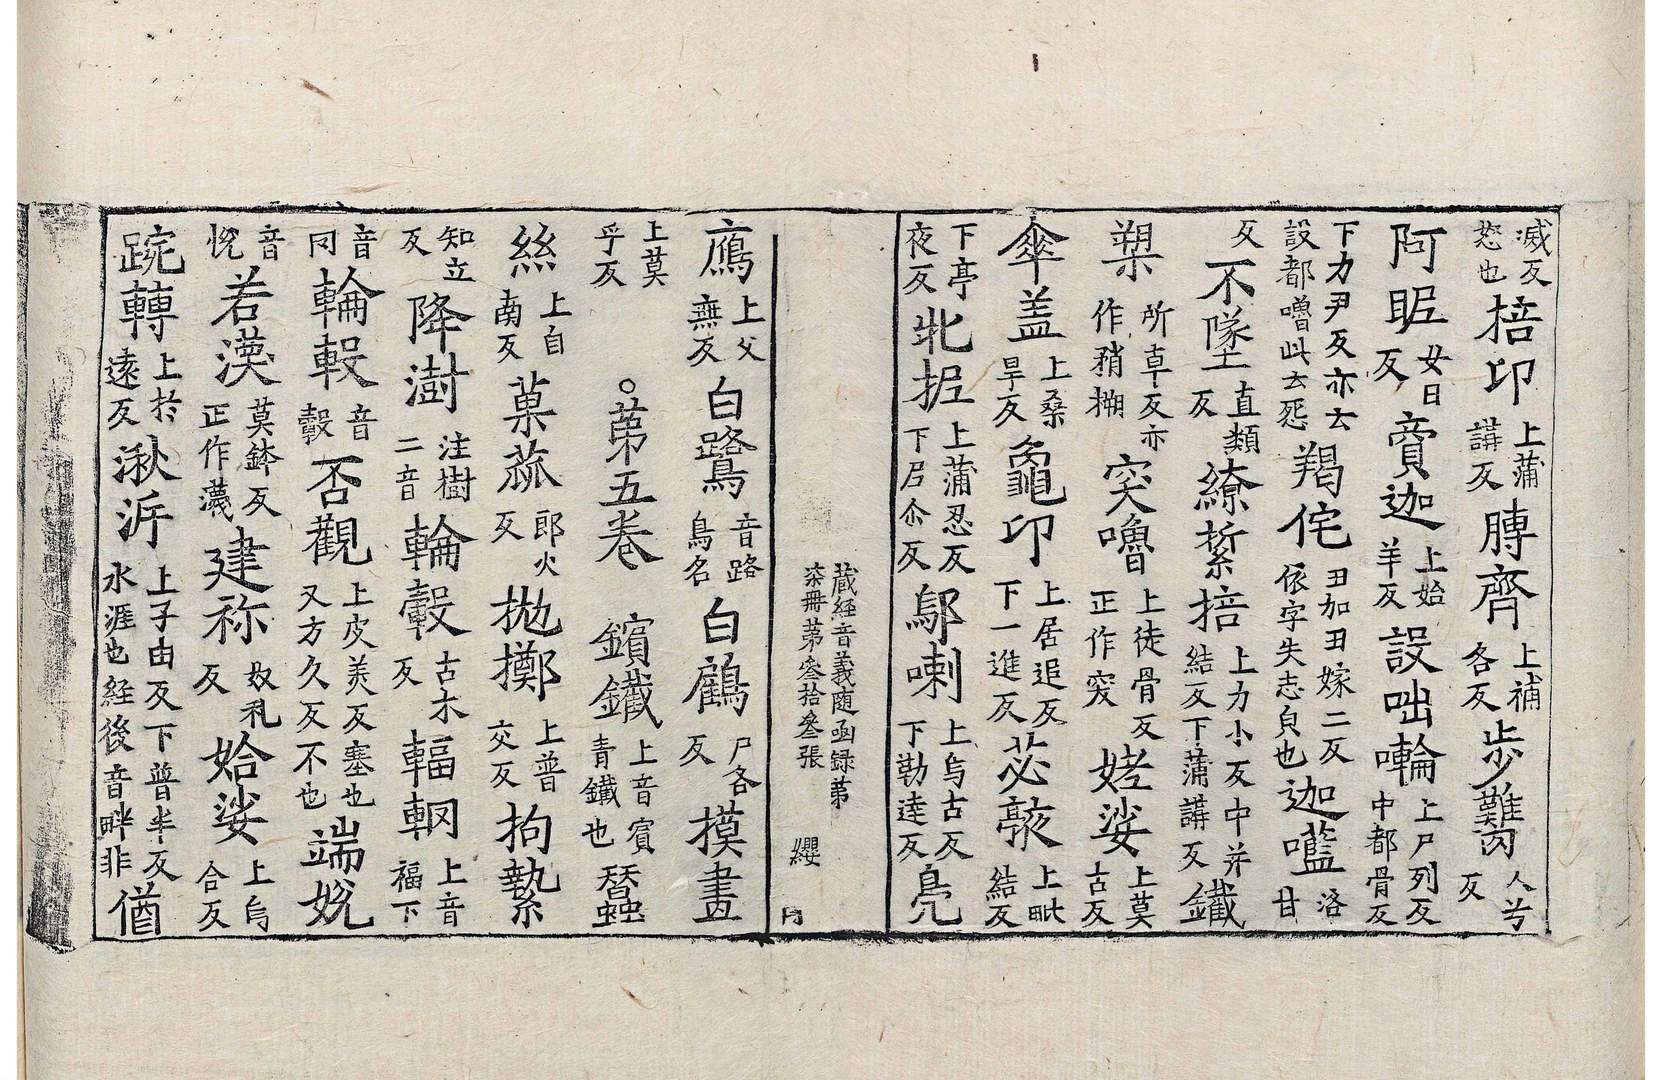 滅反恕也掊印上蒲講反膊齊上補各反步難上人兮反
阿昵女日反賷迦上始羊反設咄輪上尸列反中都骨反
下力尹反亦去設都嚕此云死羯侘丑加丑嫁二反依字失志皃也迦藍洛甘
反不墜直類反繚綮掊上力小反中并結反下蒲講反鐵
槊所卓反亦作矟槊突嚕上徒骨反正作突姥娑上莫古反
傘盖上桑旱反龜印上居追反下一進反苾𦙶上毗結反
下亭夜反牝柅上蒲忍反下尼尒反鄔喇上烏古反下勒達反鳧
藏經音義随函録第
柒冊第叁拾叁張 纓
鴈上父無反白鷺音路鳥名白鶴尸各反摸畫
上莫乎反○第五卷 鑌鐵上音賓青鐵也蠶
絲上自南反菓蓏郎火反抛擲上普交反拘縶
知立反降澍注樹二音輪轂古木反輻輞上音福下
音罔輪轂音轂否觀上皮美反塞也又方久反不也端娧
音悅若漠莫鉢反正作瀎建祢奴礼反姶娑上烏合反
踠轉上於遠反湫泝上子由反下普半反水涯也経後音畔非偤